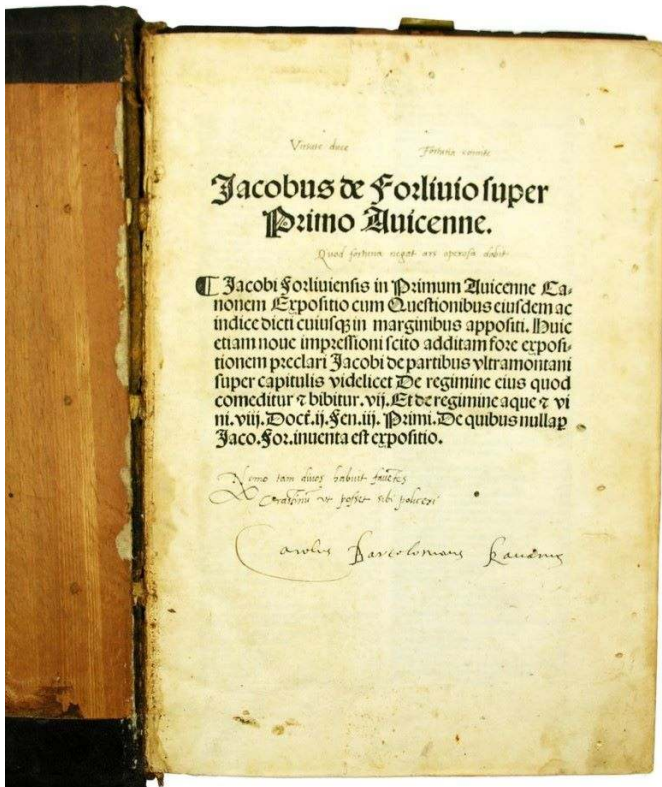 Virtute duce Fortuna comite
Jacobus de Forliuio super
Primo Auicenne.
Quod fortuna negat ars operosa dabit
¶ Jacobi Forliuiensis in Primum Auicenne Ca-
nonem Expositio cum Questionibus eiusdem ac
indice dicti cuiusqꝫ in marginibus appositi. Huic
etiam noue impressioni scito additam fore exposi-
tionem preclari Jacobi de partibus vltramontani
super capitulis videlicet De regimine eius quod
comeditur ⁊ bibitur. vij. Et de regimine aque ⁊ vi
ni. viij. Doct. ij. Fen. iij. Primi. De quibus nulla ꝑ
Jaco. For. inuenta est expositio.
Nemo tam diuos habuit
Crastinum vt posset sibi policeri
Carolus